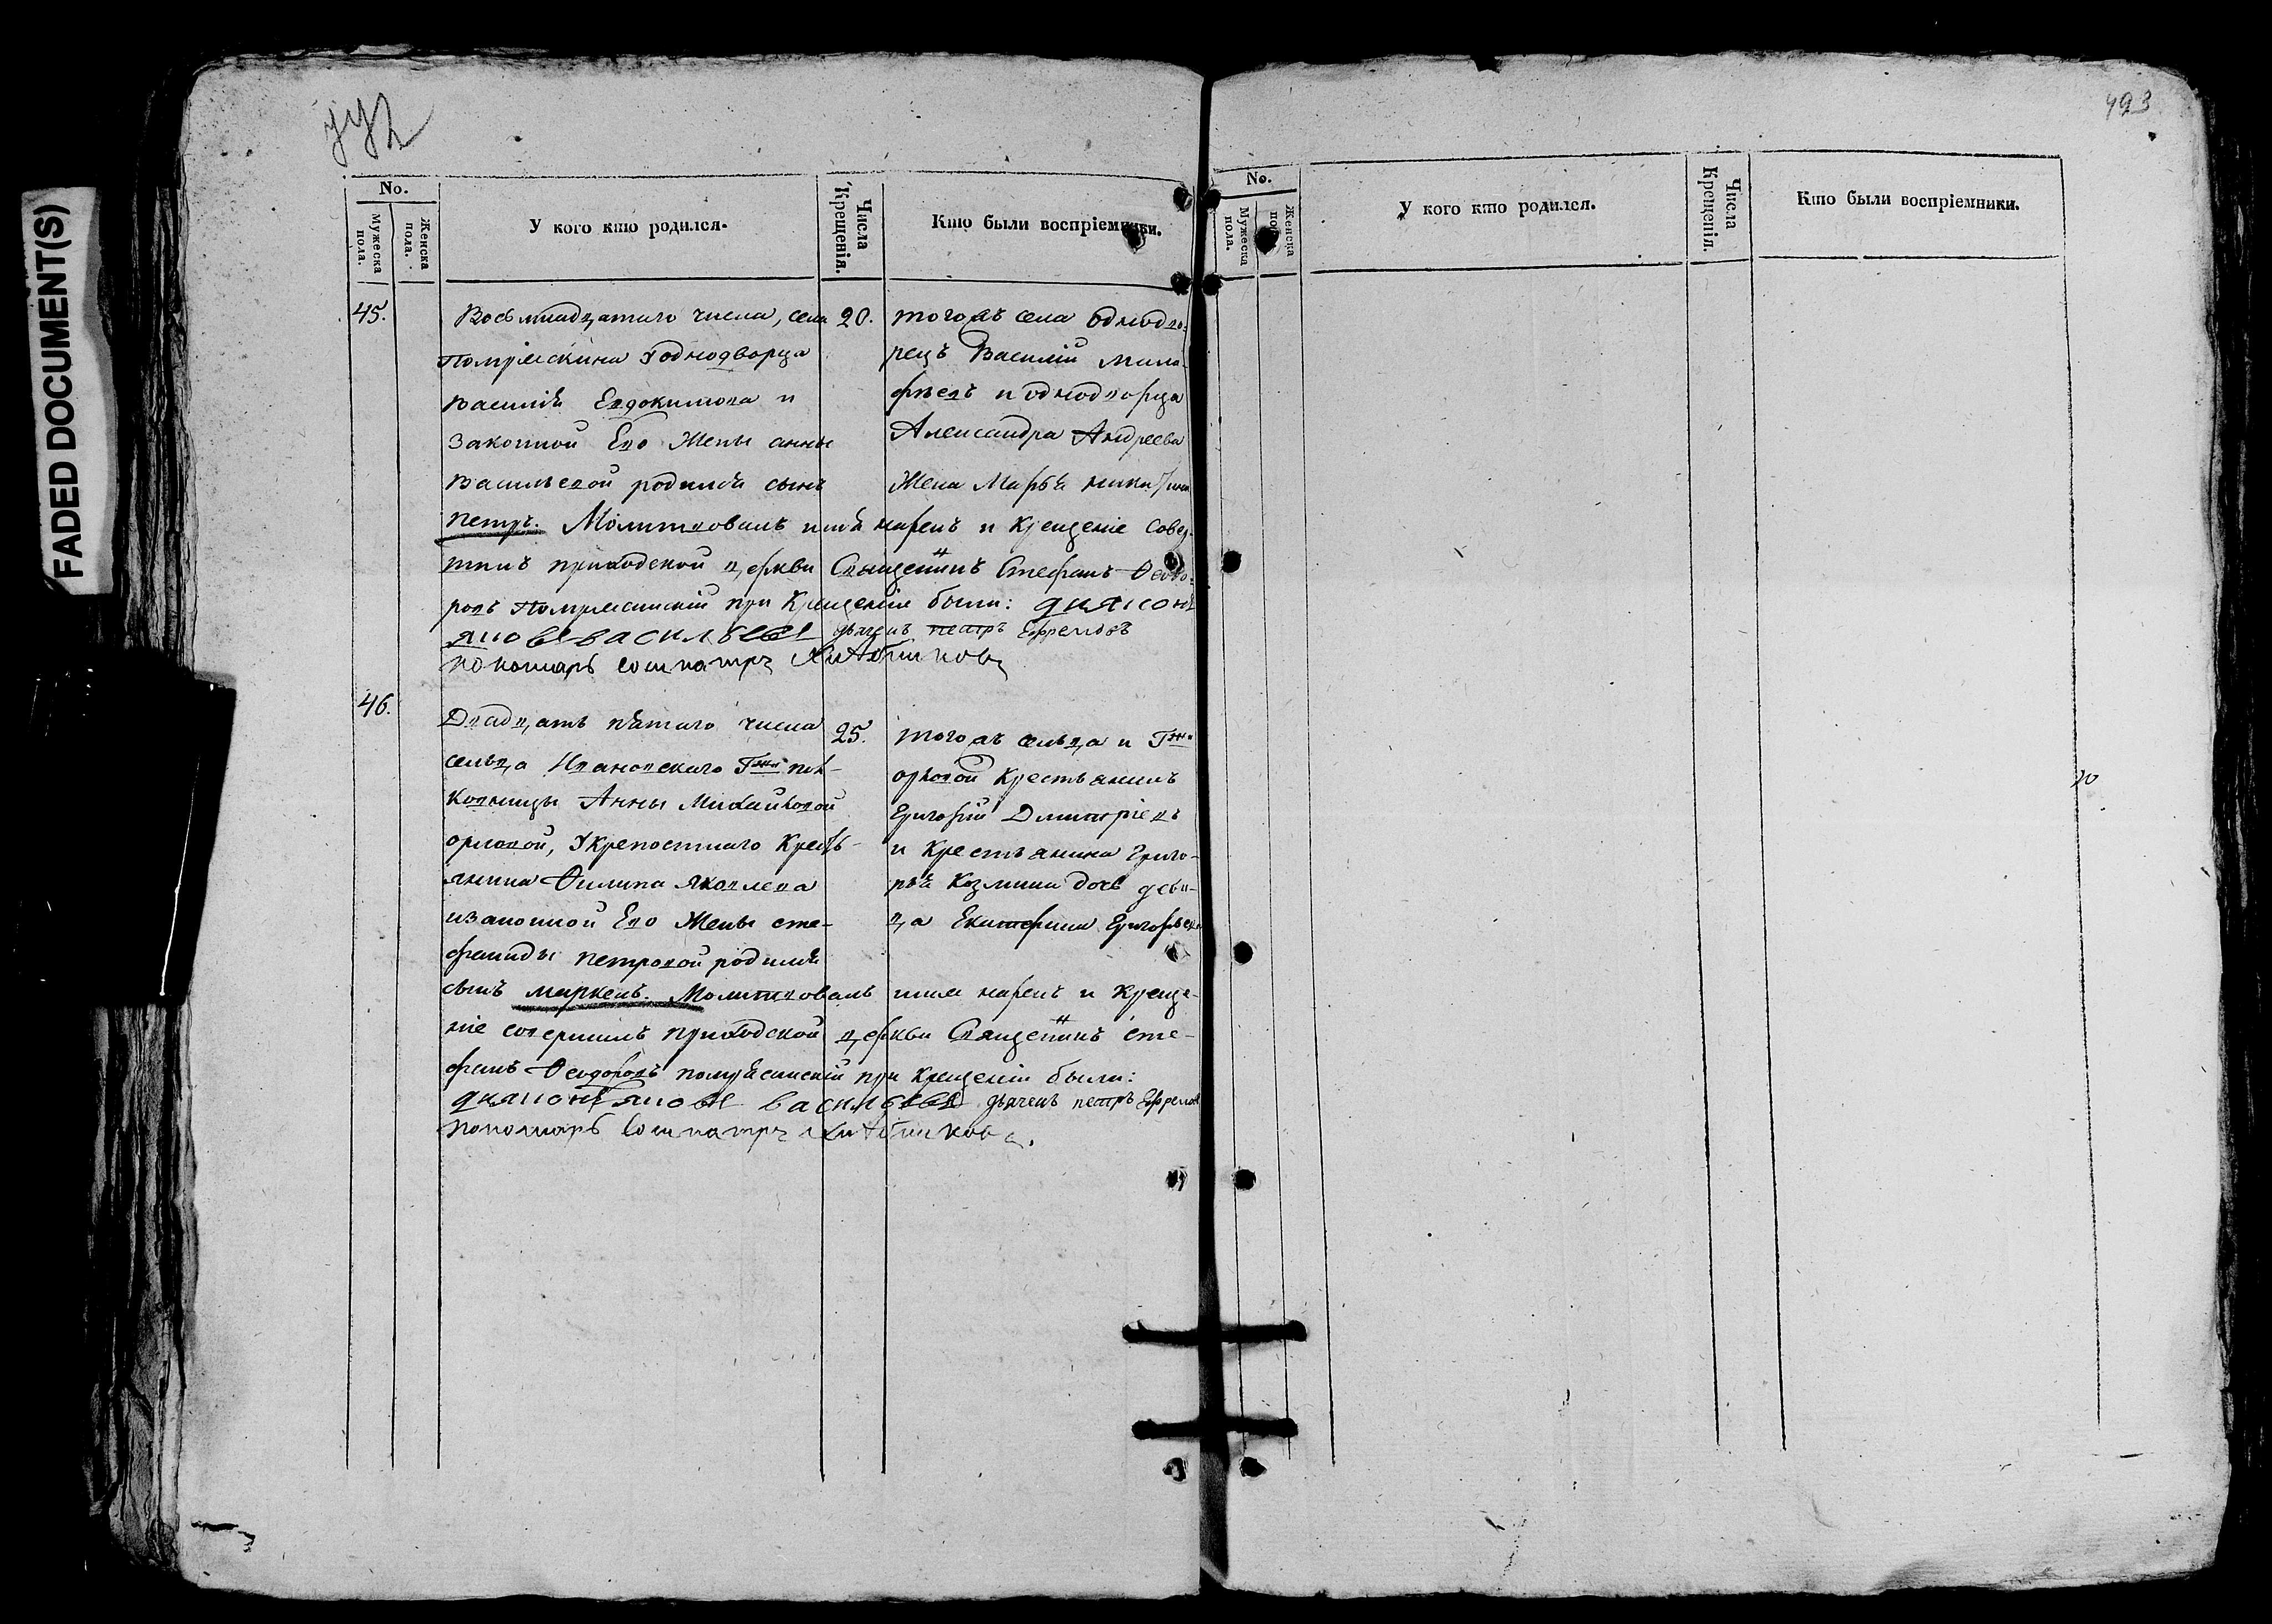 FADED DOCUMENT(S)
493
No.
Мужеска пола.
Женска пола.
У кого кто родился.
Числа Крещенія.
Кто были воспріемники.
45.
Восьмнадцатаго числа, села
У однодворца
Василія Евдокимова и
Законной Его Жены анны
Васильевой родился сынъ
Петръ. Молитвовалъ имя нарекъ и Крещеніе совер-
шилъ приходской церкви Священникъ Стефанъ Ѳеодо-
ровъ при Крещеніи были: диаконъ
яковъ васильевъ дьячекъ петръ Ефремовъ
пономарь
20.
тогожъ села однодво-
рецъ Василій
и однодворца
Александра Андреева
Жена Марья
46.
Двадцать пятаго числа
сельца Ивановскаго Гжи пол-
ковницы Анны Михайловой
орловой, У крепостнаго Крестъ-
янина Филипа Яковлева
изаконной Его Жены сте-
фаниды петровой родился
сынъ маркелъ. Молитвовалъ имя нарекъ и Креще-
ніе совершилъ приходской церкви Священникъ сте-
фанъ Ѳеодоровъ при крещеніи были:
диаконъ яковъ васильевъ дьячекъ петръ Ефремовъ
пономарь
25.
тогожъ сельца и Гжи
орловой Крестьянинъ
Григорій Дмитріевъ
и Крестьянина Григо-
рья Козмина дочь деви-
ца Екатерина Григорьева
No.
Мужеска пола.
Женска пола.
У кого кто родился.
Числа Крещенія.
Кто были воспріемники.